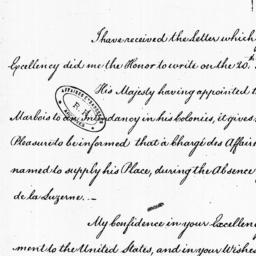 I have received the Letter which
Excellency did me the Honor to write on the 20.
His Majesty having appointed
Marbois to an Intendancy in his Colonies, it gives
Pleasure to be informed that a Chargé des Affair
named to supply his Place, during the Absence
de la Luzerne. _
My Confidence in your Excellen
ment to the United States, and in your Wishes